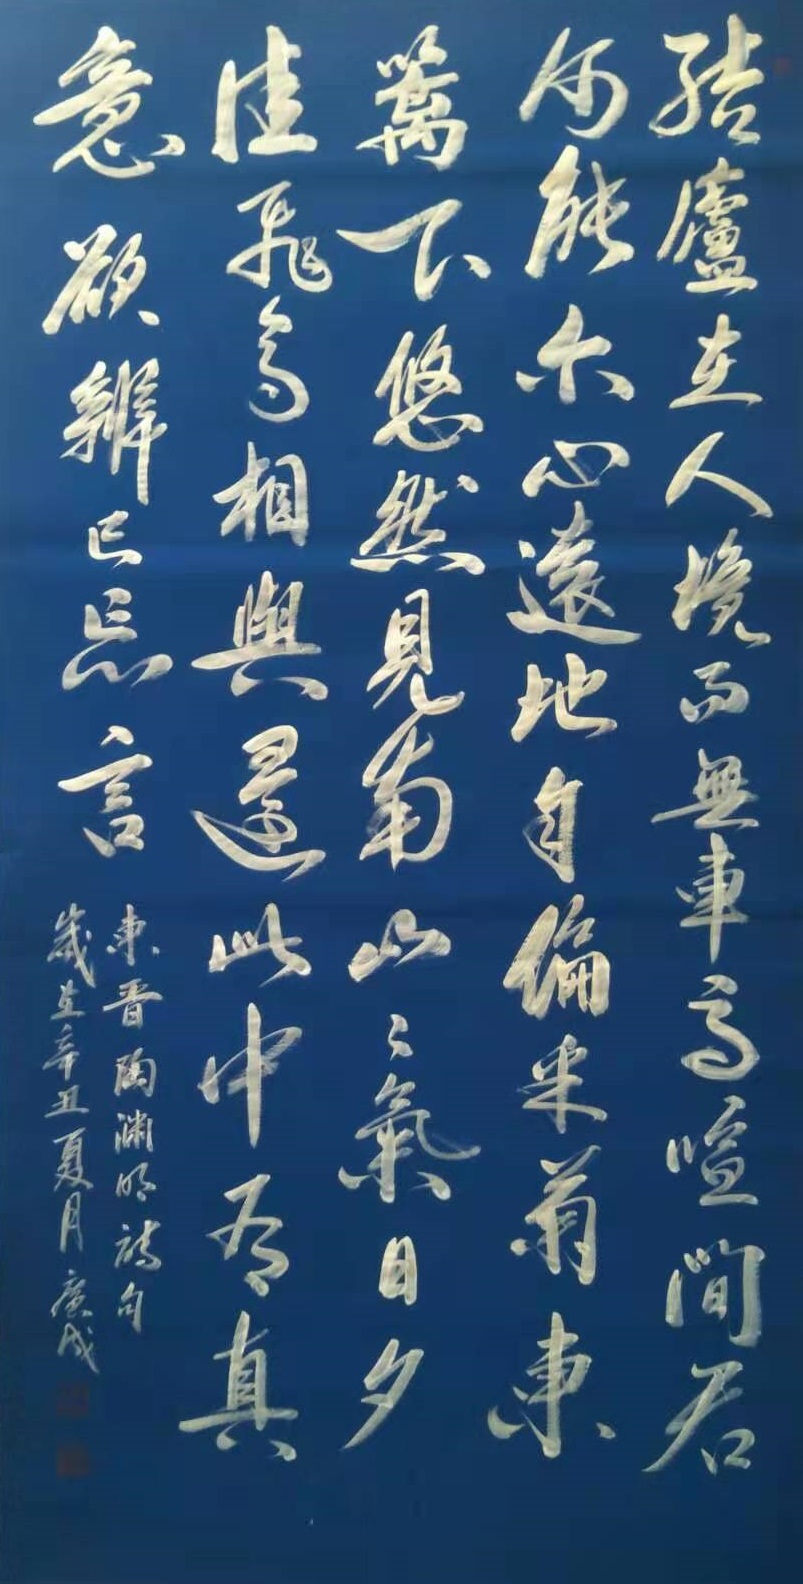 結廬在人境而無車馬喧問君
何能尔心遠地自偏采菊東
籬下悠然見南山々氣日夕
佳飛鳥相與還此中有真
意欲辨已忘言
東晋陶渊明詩句
歲在辛丑夏月廣成